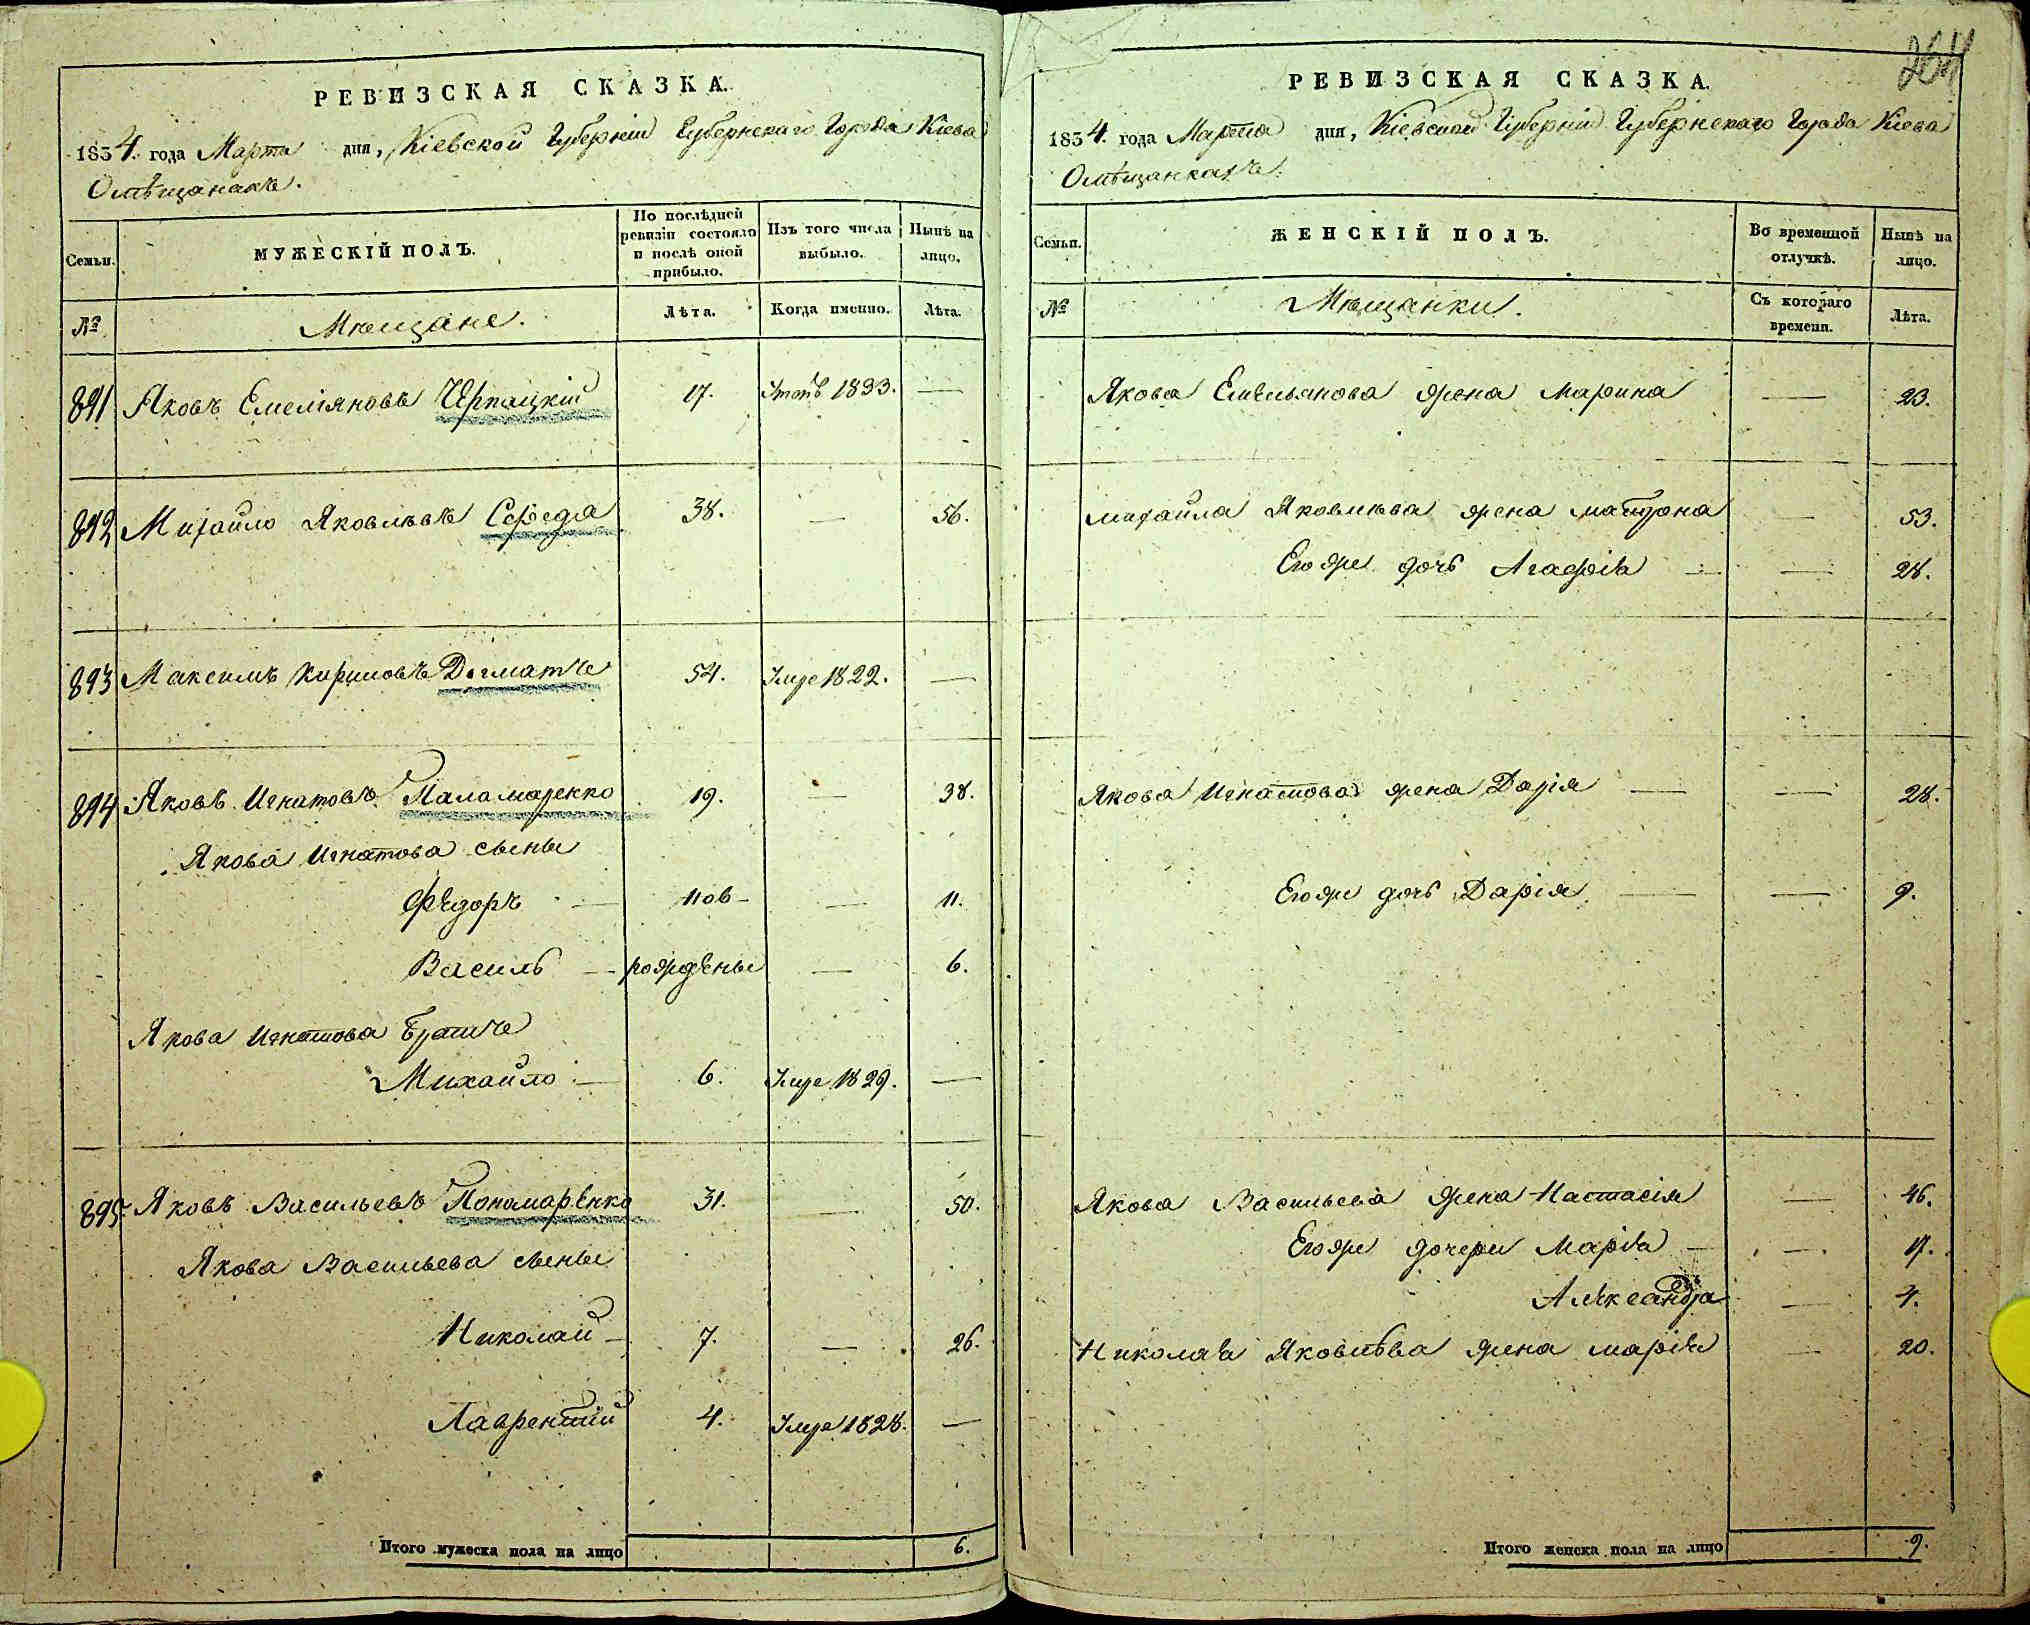 РЕВИЗСКАЯ СКАЗКА.
1834. года Марта дня, Кіевской Губерніи Губернскаго Города Кіева
О мѣщанахъ.
Семьи.
МУЖЕСКІЙ ПОЛЪ.
По послѣдней ревизіи состояло и послѣ оной прибыло.
Изъ того числа выбыло.
Нынѣ на лицо.
№
Мѣщане.
Лѣта.
Когда именно.
Лѣта.
891 Яковъ Емеліяновъ 17. 1833. —
892 Михайло Яковлѣвъ Середа 38. — 56.
893 Максимъ Кириловъ Догматъ 54. Умре 1822. —
894 Яковъ Игнатовъ Паламаренко 19. — 38.
Якова Игнатова сыны
Федоръ — нов- — 11.
Василь — рожденые — 6.
Якова Игнатова братъ
Михайло — 6. Умре 1829. —
895. Яковъ Васильевъ Пономаренко 31. — 50.
Якова Васильева сыны
Николай — 7. — 26.
Лаврентій 4. Умре 1828. —
Итого мужеска пола на лицо 6.
264
РЕВИЗСКАЯ СКАЗКА.
1834. года Марта дня, Кіевской Губерніи Губернскаго Города Кіева
О мѣщанкахъ.
Семьи.
ЖЕНСКІЙ ПОЛЪ.
Во временной отлучкѣ.
Нынѣ на лицо.
№
Мѣщанки.
Съ котораго времени.
Лѣта.
Якова Емельянова жена Марина — 23.
Михайла Яковлѣва жена Матрона — 53.
Его же дочь Агафія — — 28.
Якова Игнатова жена Дарія — — 28.
Его же дочь Дарія — — 9.
Якова Васильева жена Настасія — 46.
Его же дочери Марія — — 17.
Александра — 4.
Николая Яковлѣва жена Марія — 20.
Итого женска пола на лицо 9.